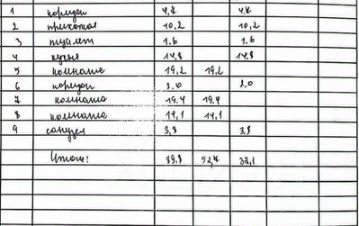 1 коридор 4,2 4,2
2 прихожая 10,2 10,2
3 туалет 1,6 1,6
4 кухня 14,8 14,8
5 комната 19,2 19,2
6 коридор 2,0 2,0
7 комната 19,4 19,4
8 комната 14,1 14,1
9 санузел 3,8 3,8
Итого: